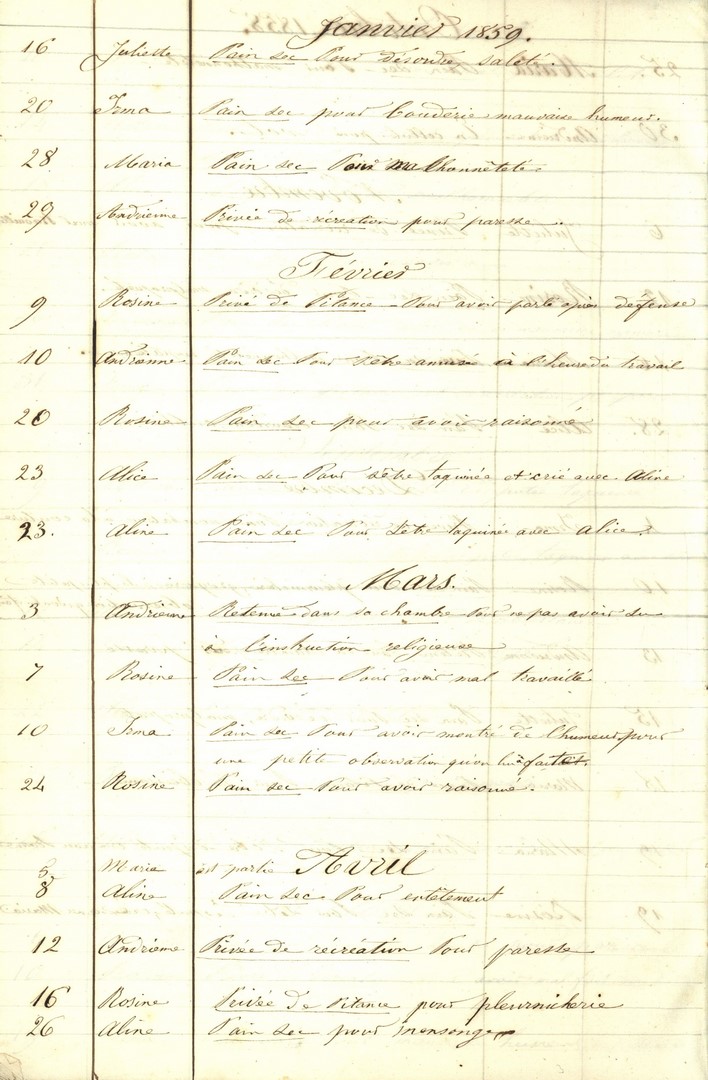 Janvier 1859.
16 Juliette Pain sec Pour désordre, saleté.
20 Irma Pain sec pour bouderie, mauvaise humeur.
28 Maria Pain sec Pour malhonnêteté.
29 Andrienne Privée de récréation pour paresse.
Février
9 Rosine Privé de Pitance Pour avoir parlé après défense
10 Andrienne Pain sec Pour s'être amusé à l'heure du travail
20 Rosine Pain sec pour avoir raisonné
23 Alice Pain sec Pour s'être taquinée et crié avec Aline
23. Aline Pain sec Pour s'être taquinée avec Alice.
Mars.
3 Andrienne Retenue dans sa chambre Pour ne pas avoir su
à l'instruction religieuse
7 Rosine Pain sec Pour avoir mal travaillé
10 Irma Pain sec Pour avoir montré de l'humeur pour
une petite observation qu'on lui a
24 Rosine Pain sec Pour avoir raisonné.
Avril
5 Marie est partie
8 Aline Pain sec Pour entêtement
12 Andrienne Privée de récréation Pour paresse
16 Rosine Privée De Pitance pour pleurnicherie
26 Aline Pain sec pour mensonge